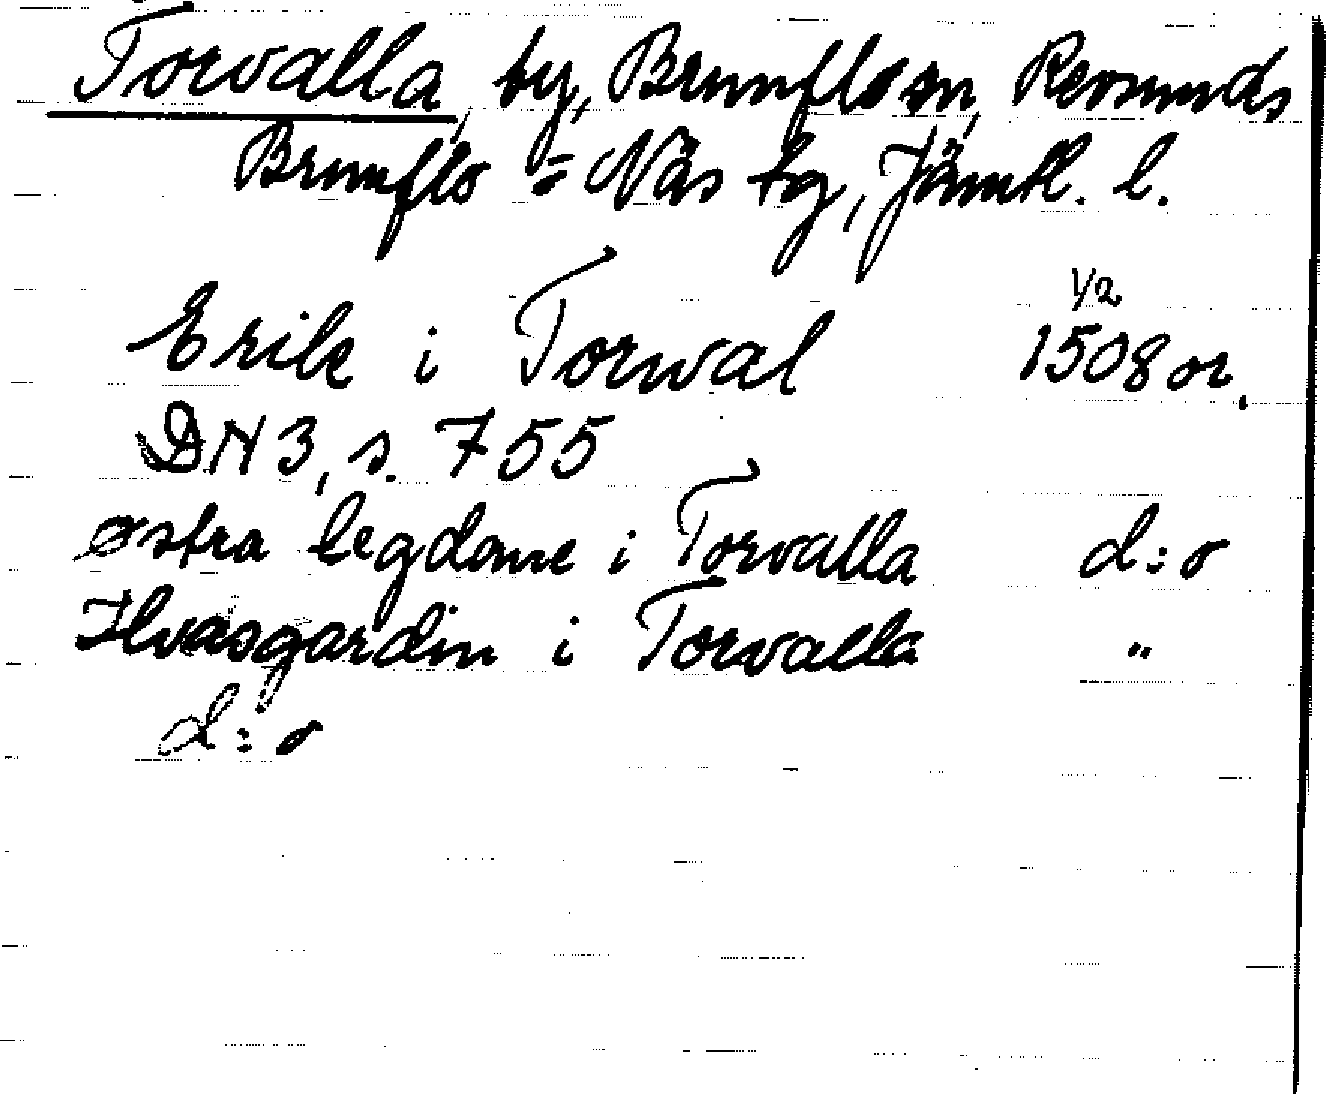 Torvalla, by, Brunflo sn, Revsunds
Brunflo = Näs tg, Jämtl. l.
Erik i Torwal 1/2 1508 or.
DN 3, s. 755
østra legdone i Torvalla d:o
Ilvasgardin i Torvalla "
d:o